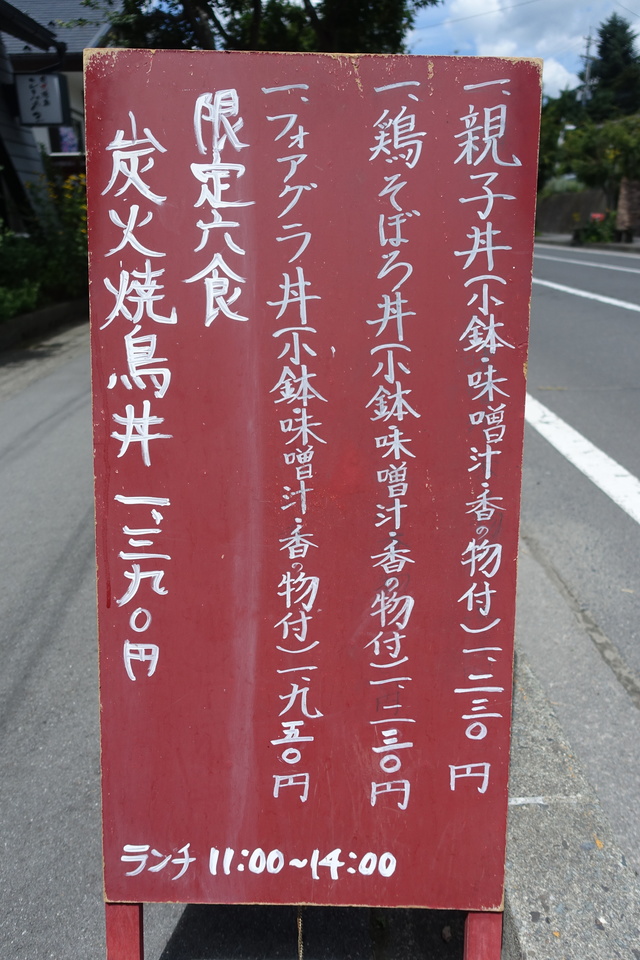 一、親子丼(小鉢・味噌汁・香の物付)一、二三〇円
一、鶏そぼろ丼(小鉢・味噌汁・香の物付)一、二三〇円
一、フォアグラ丼(小鉢・味噌汁・香の物付)一、九五〇円
限定六食
炭火焼鳥丼 一、三九〇円
ランチ 11:00~14:00